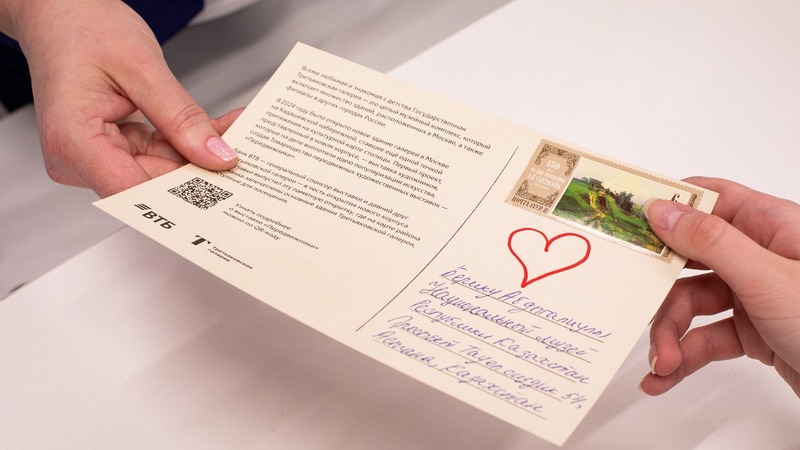 Всеми любимая и знакомая с детства Государственная
Третьяковская галерея — это целый музейный комплекс, который
включает множество зданий, расположенных в Москве, а также
филиалы в других городах России.
В 2024 году было открыто новое здание галереи в Москве
на Кадашевской набережной, ставшее ещё одной точкой
притяжения на культурной карте столицы. Первый проект,
представленный в новом корпусе, — выставка художников,
которые на деле воплотили идею популяризации искусства,
создав Товарищество передвижных художественных выставок —
«Передвижники».
Банк ВТБ — генеральный спонсор выставки и давний друг
Третьяковской галереи — в честь открытия нового корпуса
и выставки выпускает эту памятную открытку, где на карте района
запечатлены основные здания Третьяковской галереи,
для посещения.
Узнать подробнее
о выставке «Передвижники»
можно по QR-коду:
ВТБ
Третьяковская
галерея
150
ПОЧТА СССР
6
Берику Абдигалиулы
Национальный музей
Республики Казахстан
Проспект Тауелсиздик 54,
Астана, Казахстан